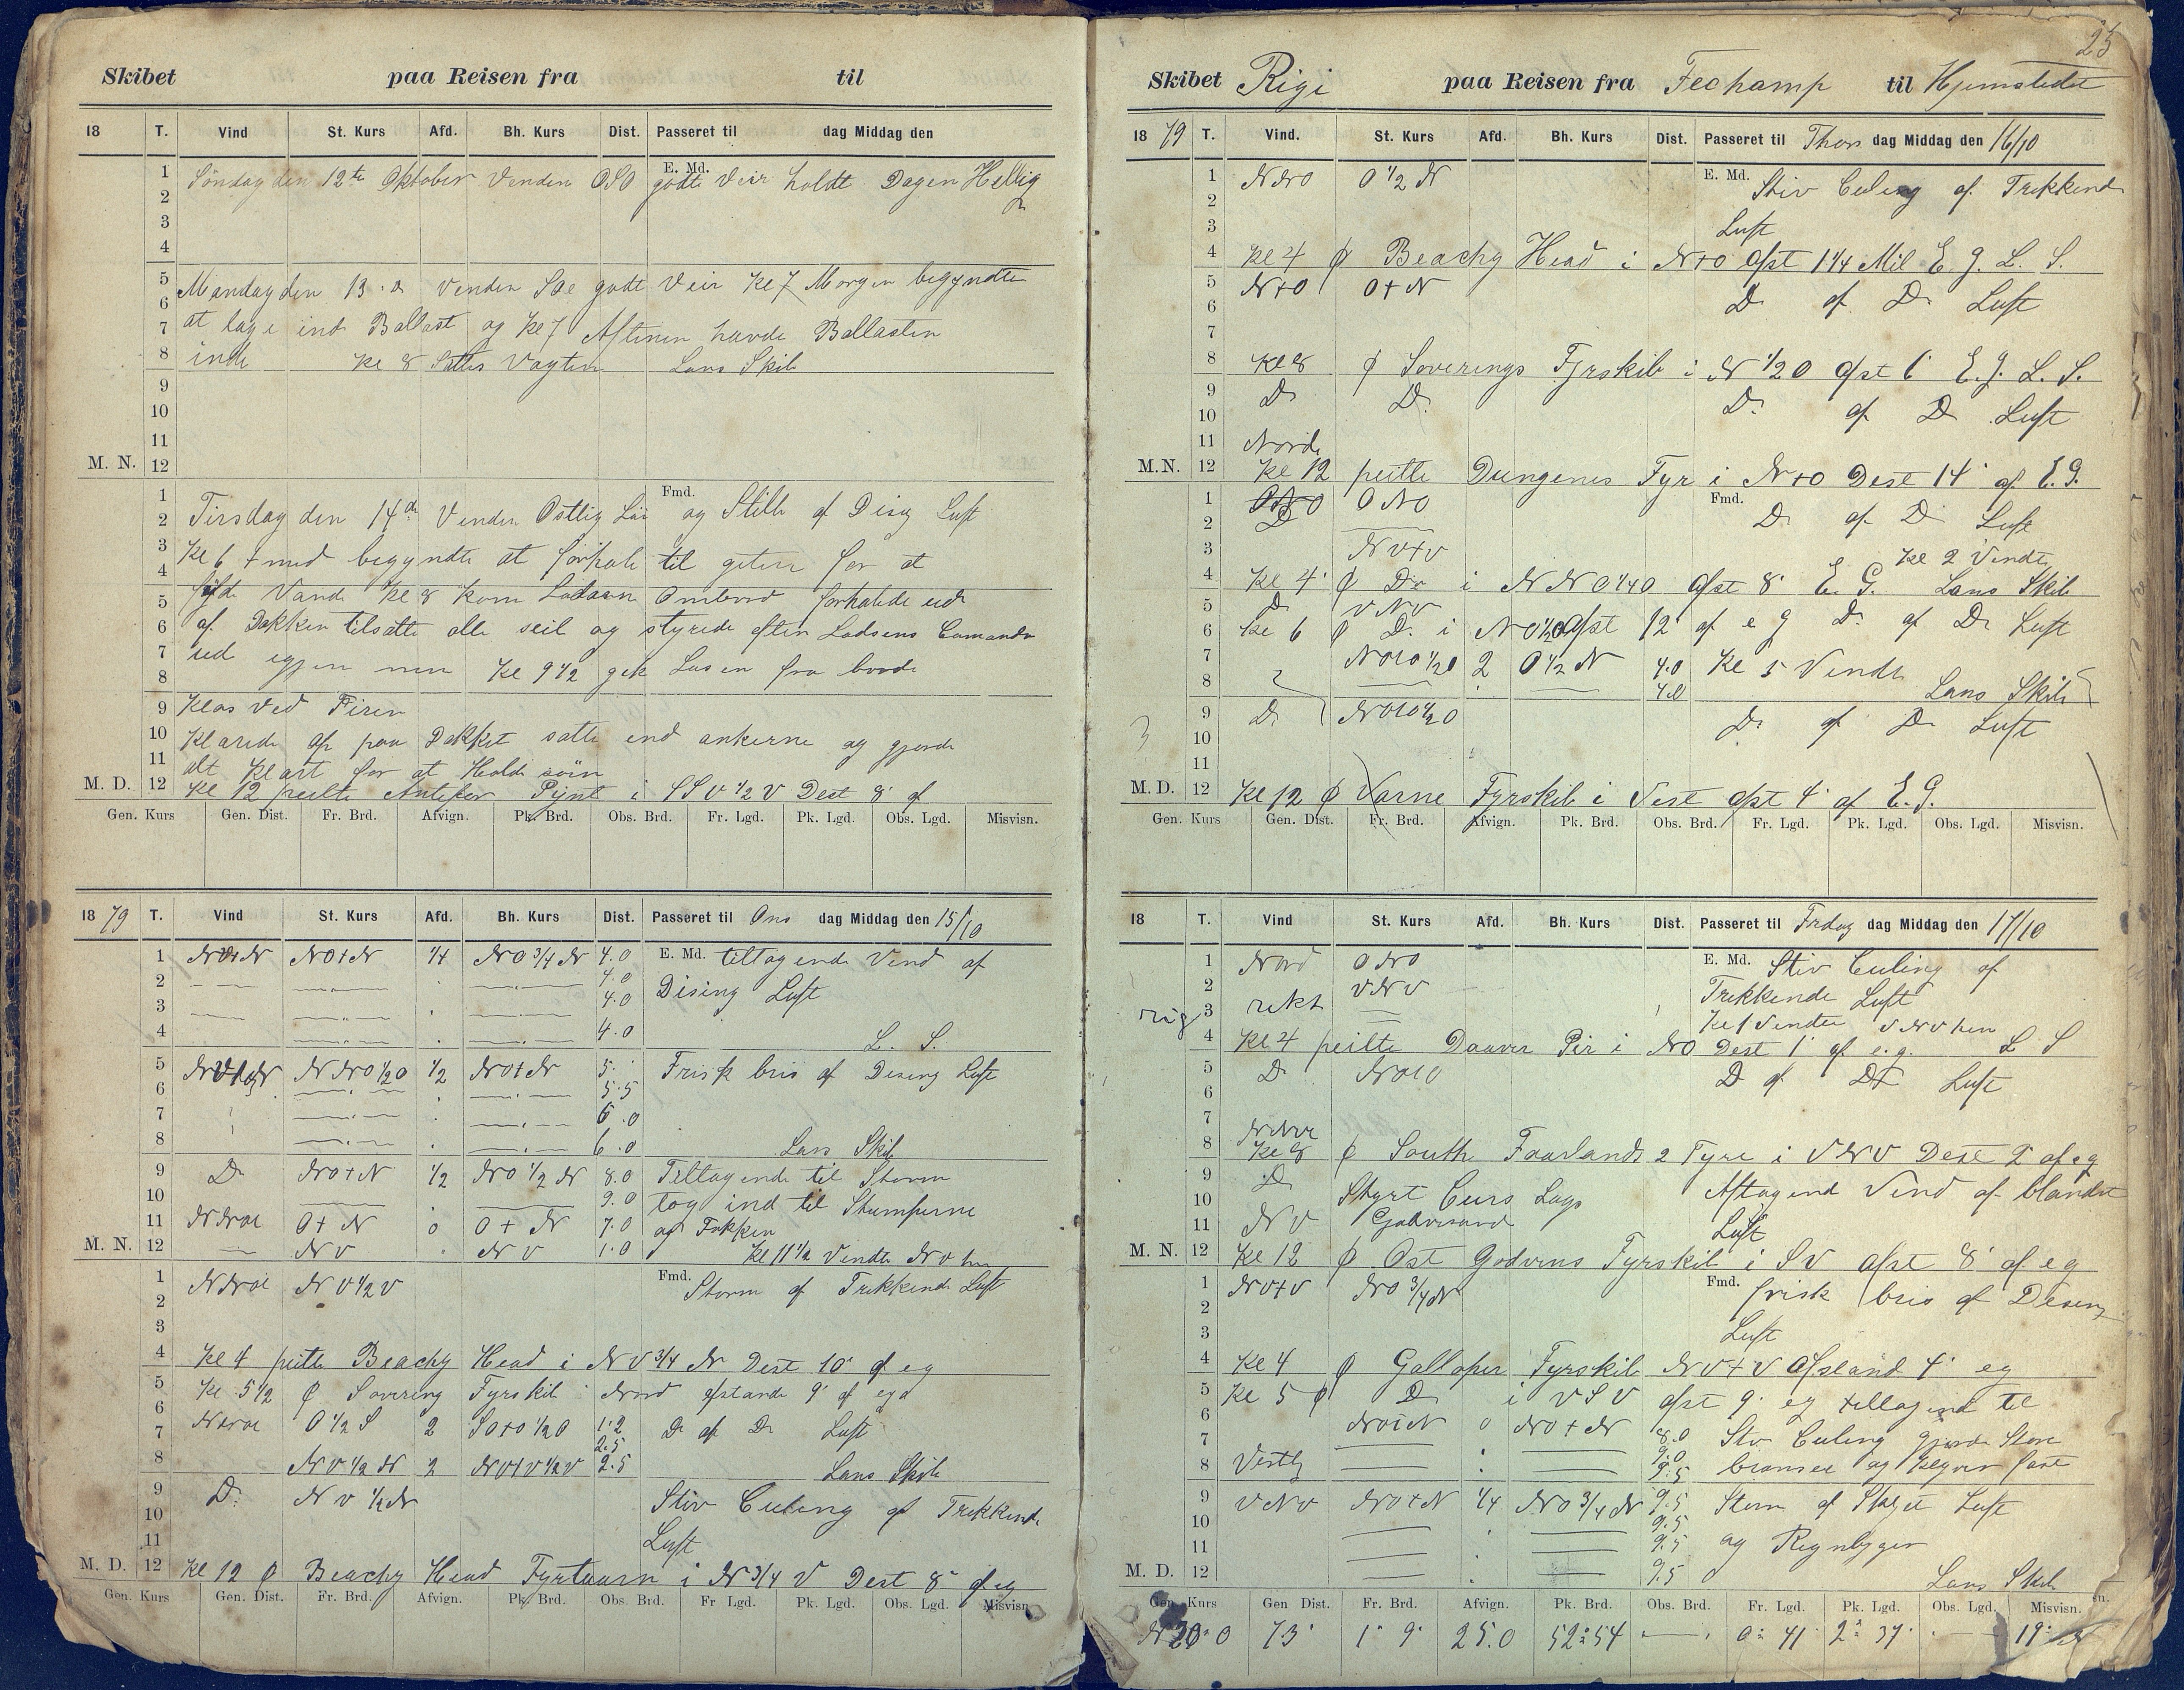 Skibet paa Reisen fra til
18 T. Vind St. Kurs Afd. Bh. Kurs Dist. Passeret til dag Middag den
E. Md.
1 Söndag den 12te Oktober Venden OSO godt Veir holdt Dagen Hellig
2
3
4
5 Mandag den 13.de Venden SOe godt Veir Kl 7 Morgen begyndte
6
7 at tage ind Ballast og Kl 7 Aftenen havde Ballasten
8 inde Kl 8 Sattes Vagten Lans Skib
9
10
11
M. N. 12
Fmd.
1
2 Tirsdag den 14de Venden Ostlig og Stille af Disig Luft
3 Kl 6 begyndte at forhale til for at
4
5 Vand Kl 8 kom Lodsen Ombord forhalede ud
6 af Dokken tilsatte alle seil og styrede efter Lodsens Comando
7 ud Kl 9 1/2 gik Losen fra borde
8
9 Klos Ved Piren
10 Klarede op paa Dækket satte end ankerne og gjorde
11 alt Klart for at Holde
M. D. 12 Kl 12 peilte Antifer Pynt i SSV 1/2 V Dest 8' af
Gen. Kurs Gen. Dist. Fr. Brd. Afvign. Pk. Brd. Obs. Brd. Fr. Lgd. Pk. Lgd. Obs. Lgd. Misvisn.
1879 T. Vind St. Kurs Afd. Bh. Kurs Dist. Passeret til Ons dag Middag den 15/10
1 NO+N 1/4 NO 3/4 N 4.0 E. Md. tiltagende Vend af
2 4.0
3 4.0 Dising Luft
4 4.0 L. S.
5 NNO 1/2 O 1/2 NO+N 5. Frisk bris af Desing Luft
6 5.5
7 6.0
8 6.0 Lans Skib
9 D. NO+N 1/2 NO 1/2 N 8.0 Tiltagende til Storm
10 9.0 tog ind til Stumperne
11 O+N 0 O+N 7.0 og Fokken
M. N. 12 NV NV 1.0 Kl 11 1/2 Vendte NV hen
Fmd.
1 NV 1/2 V Storm af Trekkende Luft
2
3
4 Kl 4 peilte Beachy Head i NV 3/4 N Dest 10' af eg
5 Kl 5 1/2 ϕ Sovering Fyrskib i Nord afstande 9' af
6
7 O 1/2 S 2 SO+O 1/2 O 1.2 D. af D. Luft
2.5
8 NV 1/2 N 2 NV+V 1/2 V 2.5 Lans Skib
9 D. NV 1/2 N Stiv Culing af Trekkende
10
11 Luft
M. D. 12 Kl 12 ϕ Beachy Head Fyrtaarn i N 3/4 V Dest 8' af eg
Gen. Kurs Gen. Dist. Fr. Brd. Afvign. Pk. Brd. Obs. Brd. Fr Lgd. Pk. Lgd. Obs. Lgd. Misvisn.
25
Skibet Rigi paa Reisen fra Fechamp til Hjemstedet
1879 T. Vind. St. Kurs Afd. Bh. Kurs Dist. Passeret til Thors dag Middag den 16/10
1 NNO O 1/2 N E. Md. Stiv Culing af Trekkende
2
3 Luft
4 Kl 4 ϕ Beachy Head i N+O Afst 1 1/4 Mil E. G. L. S.
5 N+O O+N
6 D. af D. Luft
7
8 Kl 8 ϕ Soverings Fyrskib i N 1/2 O Afst 6' E. G. L. S.
9 D. D. D. af D. Luft
10
11 Nord
M. N. 12 Kl 12 peilte Dungenes Fyr i N+O Dest 14' af E. G.
1 ONO Fmd.
2 D D. af D. Luft
3 NV+V Kl 2 Vendte
4 Kl 4 ϕ D. i NNO 1/4 O Afst 8' E. G. Lans Skib
5 D VNV
6 Kl 6 ϕ D. i NO 1/2 O Afst 12' af e g D. af D. Luft
7 2 O 1/2 N 4.0 Kl 5 Vendte
8 Lans Skib
9 D. D. af D. Luft
10
11
M. D. 12 Kl 12 ϕ Varne Fyrskib i Vest Afst 4' af E. G.
Gen. Kurs Gen. Dist. Fr. Brd. Afvign. Pk. Brd. Obs. Brd. Fr. Lgd. Pk. Lgd. Obs. Lgd. Misvisn.
18 T. Vind St. Kurs Afd. Bh. Kurs Dist. Passeret til Fredag dag Middag den 17/10
1 Nord ONO E. Md. Stiv Culing af
2 VNV Trekkende Luft
3 Kl 1 Vendte VNV hen
4 Kl 4 peilte Daaver Pir i NO Dest 1' af e.g. L S
5 D.
6 D. af D. Luft
7
8 Kl 8 ϕ South Foorlands 2 Fyre i VNV Dest 2' af eg
9 D.
10 Styrt Curs Lags Aftagende Vend af blandet
11 NV Luft
M. N. 12 Kl 12 ϕ Ost Godvens Fyrskib i SV afst 8' af eg
1 NV+V NO 3/4 N Fmd. frisk bris af Desing
2
3 Luft
4 Kl 4 ϕ Galloper Fyrskib NV+V Afstand 4' eg
5 Kl 5 ϕ D. i VSV afst 9' eg tiltagende til
6 0 NO+N 8.0 Stiv Culing gjorde Store
7 9.0
8 Vestlig 9.5 bramseil og fast
9 VNV NO+N 1/4 NO 3/4 N 9.5 Storm af Skyet Luft
10 9.5
11 9.5 og Regnbyger
M. D. 12 9.5 Lans Skib
Gen. Kurs Gen Dist. Fr. Brd. Afvign. Pk. Brd. Obs. Brd. Fr. Lgd. Pk. Lgd. Obs. Lgd. Misvisn.
73' 1° 9' 25.0 52°54 0° 41' 2° 37' 19°